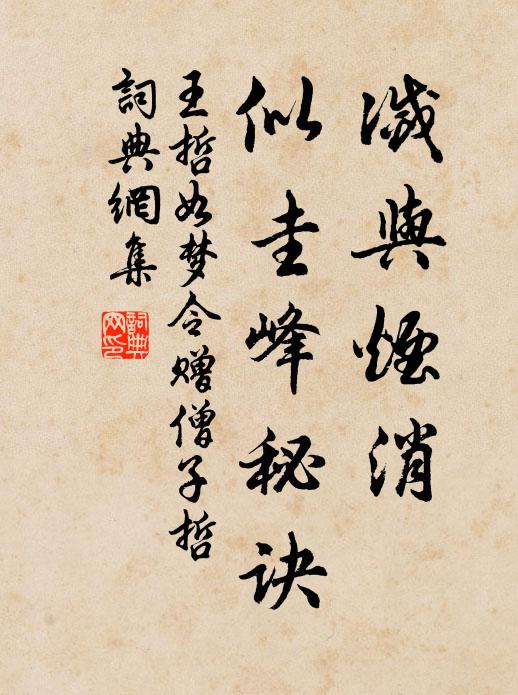 滅與煙消
似圭峰秘訣
王哲如梦令赠僧子哲
詞典網集
詞典
网印